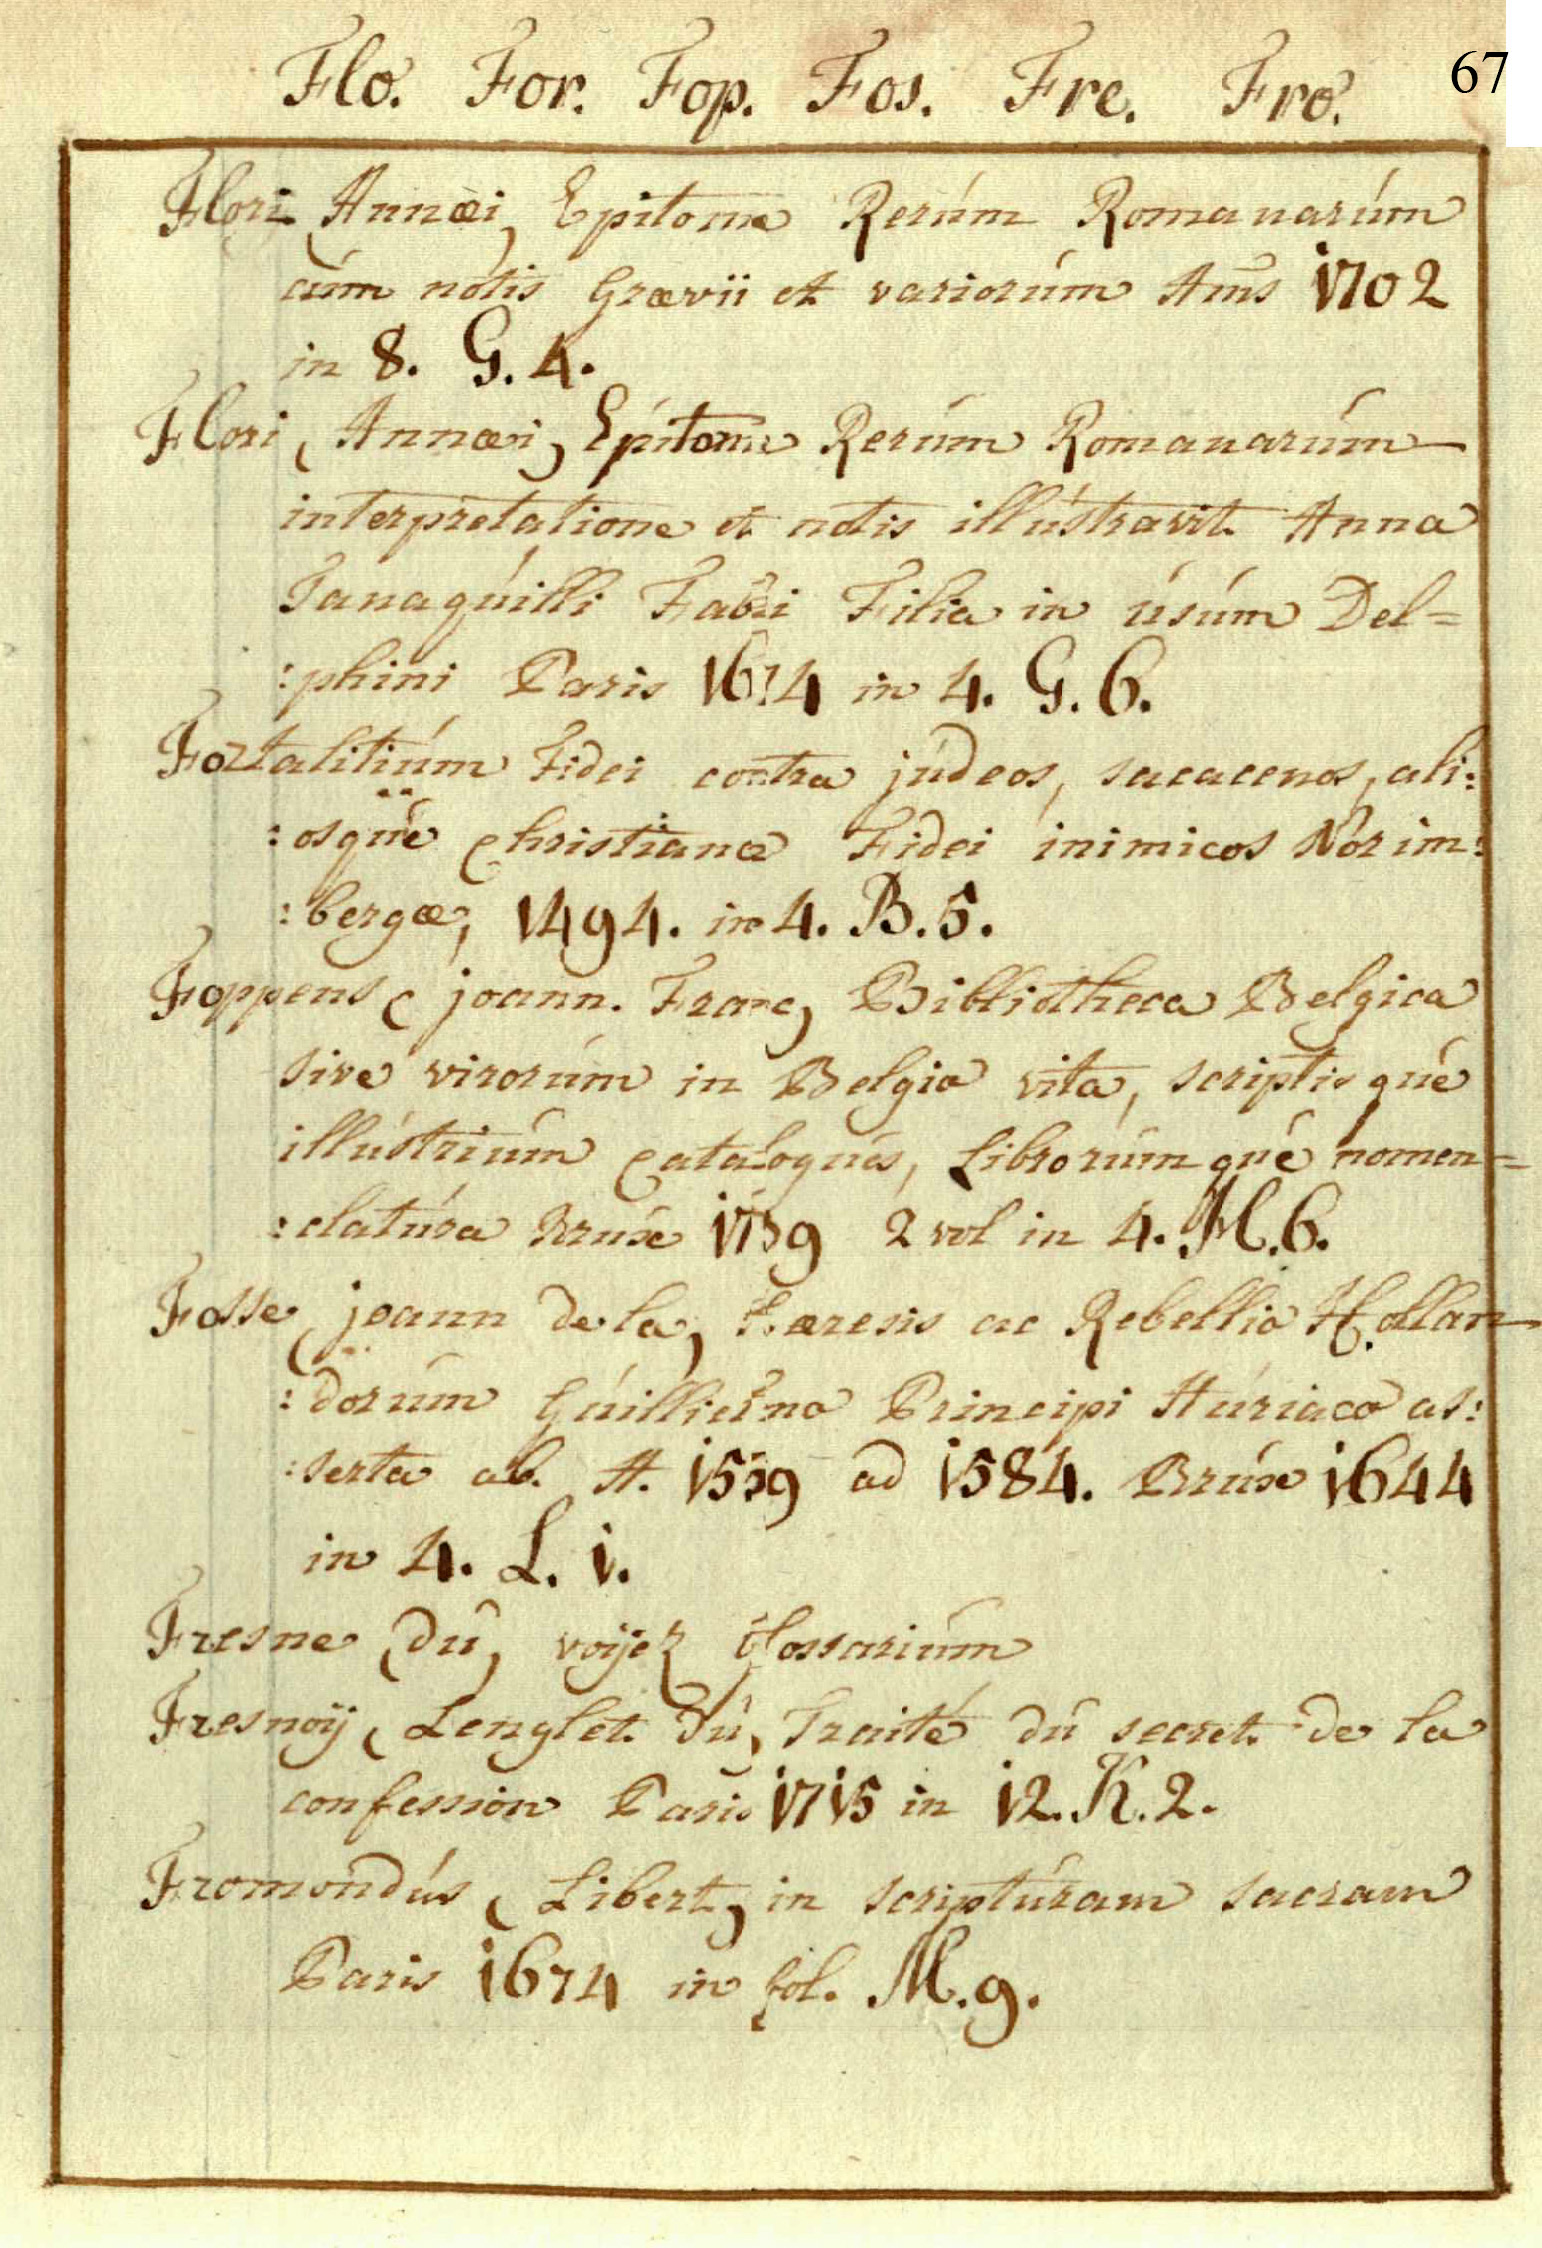 Flo. For. Fop. Fos. Fre. Fro.
67
Flori (Annæi) Epitome Rerúm Romanarúm
cúm notis Grævii et variorúm Ams 1702
in 8. G. 4.
Flori (Annæi) Epitome Rerúm Romanarúm
interpretatione et notis illústravit Anna
Tanaqúilli Fabri Filia in úsúm Del=
:phini Paris 1674 in 4. G. 6.
Fortalitiúm Fidei contra júdeos, saracenos, ali:
:osqúe Christianæ Fidei inimicos Norim:
:bergæ, 1494. in 4. B. 5.
Foppens (joann. Franc) Bibliotheca Belgica
sive virorúm in Belgio vita, scriptisqúe
illústriúm Catalogús, Librorúmqúe nomen=
:clatúra Brúx 1739 2 vol in 4. M. 6.
Fosse (joann de la) Hæresis ac Rebellio Hollan
:dorúm Gúillielmo Principi Aúriaco as:
:serta ab. A. 1559 ad 1584. Brúx 1644
in 4. L. i.
Fresne (dú) voijez Glossariúm
Fresnoij (Lenglet dú) Traité dú secret de la
confession Paris 1715 in 12. K. 2.
Fromondús (Libert) in scriptúram sacram
Paris 1674 in fol. M. 9.